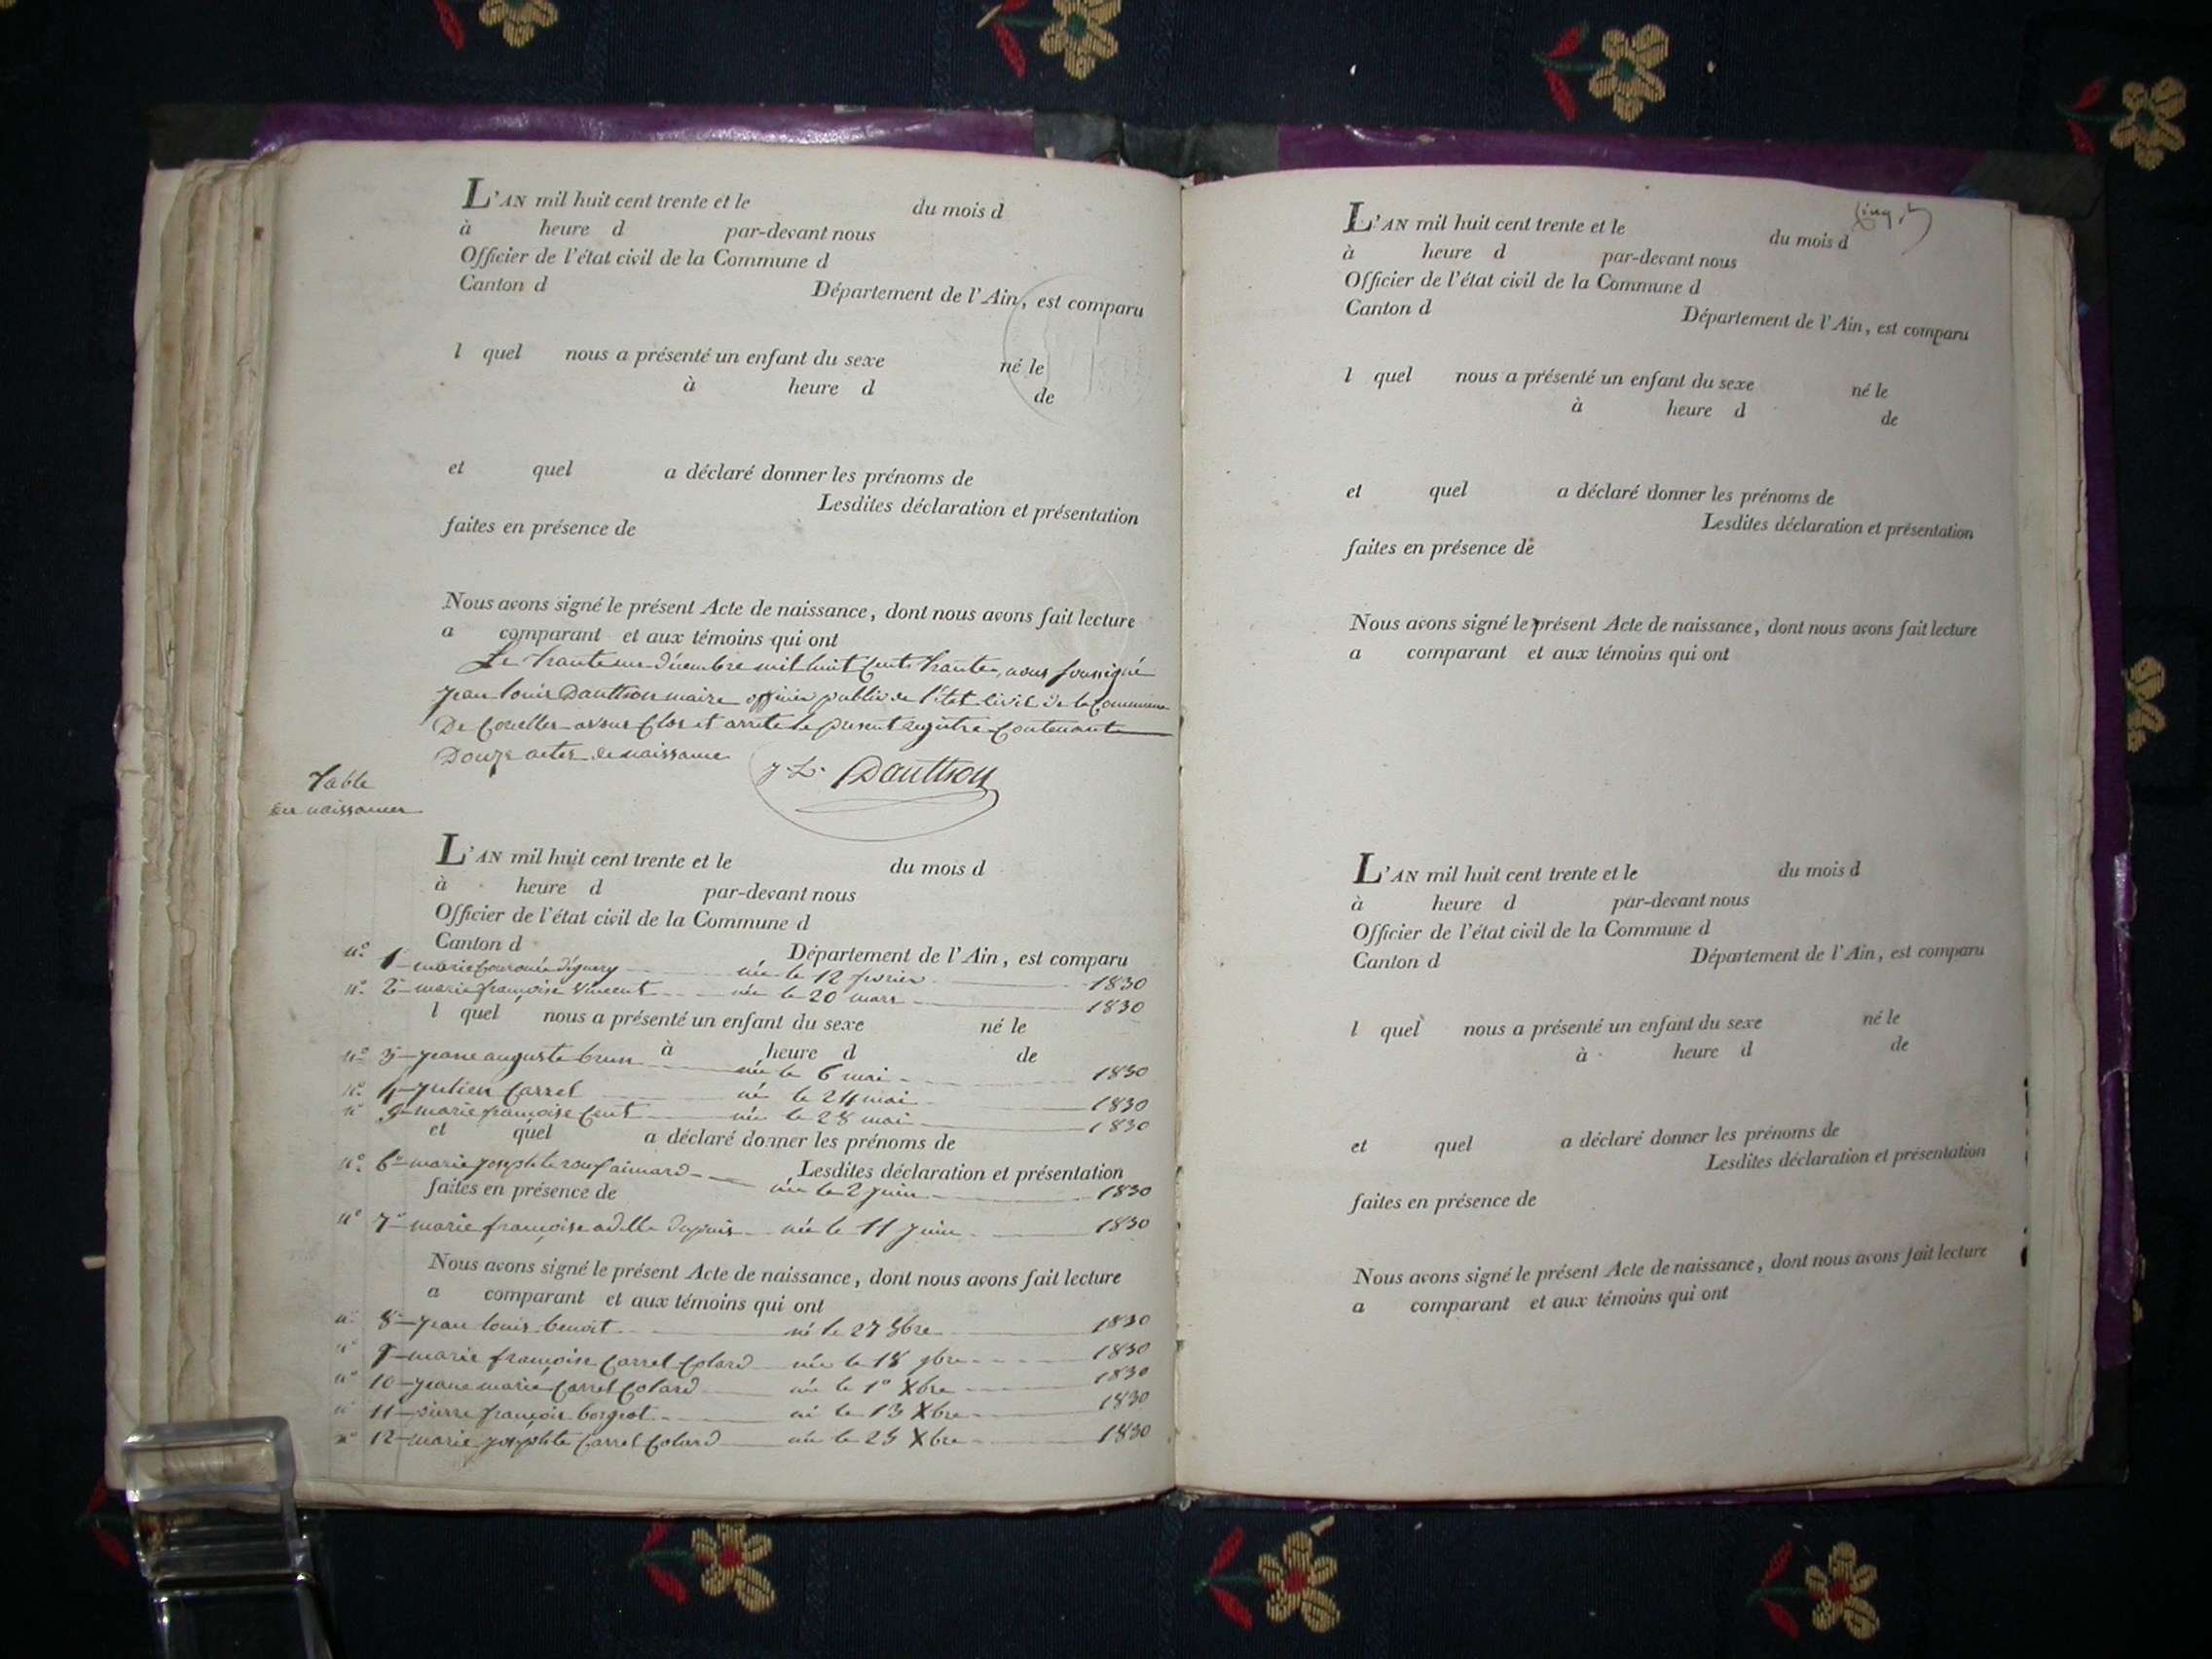 L'AN mil huit cent trente et le du mois d
à heure d par-devant nous
Officier de l'état civil de la Commune d
Canton d Département de l'Ain, est comparu
l quel nous a présenté un enfant du sexe né le
à heure d de
et quel a déclaré donner les prénoms de
Lesdites déclaration et présentation
faites en présence de
Nous avons signé le présent Acte de naissance, dont nous avons fait lecture
a comparant et aux témoins qui ont
Le trante un décembre mil huit cents trante, nous soussigné
jean louis Dautthon maire officier public de l'état civil de la Commune
De avons clos et arrete le present registre contenant
Douze actes de naissance J. L. Dautthon
Table
des naissances
L'AN mil huit cent trente et le du mois d
à heure d par-devant nous
Officier de l'état civil de la Commune d
Canton d Département de l'Ain, est comparu
n° 1 marie née le 12 fevrier 1830
n° 2 marie françoise Vincent née le 20 mars 1830
l quel nous a présenté un enfant du sexe né le
à heure d de
n° 3 jeane auguste brun née le 6 mai 1830
n° 4 julien Carrel né le 24 mai 1830
n° 5 marie françoise Cent née le 28 mai 1830
et quel a déclaré donner les prénoms de
Lesdites déclaration et présentation
n° 6 marie josephte née le 2 juin 1830
faites en présence de
n° 7 marie françoise adelle dupuis née le 11 juin 1830
Nous avons signé le présent Acte de naissance, dont nous avons fait lecture
a comparant et aux témoins qui ont
n° 8 jean louis benoit né le 27 8bre 1830
n° 9 marie françoise Carrel Colard née le 18 9bre 1830
n° 10 jeane marie Carrel Colard née le 1° Xbre 1830
n° 11 pierre françois borgeot né le 13 Xbre 1830
n° 12 marie josephte Carrel Colard née le 25 Xbre 1830
L'AN mil huit cent trente et le du mois d
à heure d par-devant nous
Officier de l'état civil de la Commune d
Canton d Département de l'Ain, est comparu
l quel nous a présenté un enfant du sexe né le
à heure d de
et quel a déclaré donner les prénoms de
Lesdites déclaration et présentation
faites en présence de
Nous avons signé le présent Acte de naissance, dont nous avons fait lecture
a comparant et aux témoins qui ont
L'AN mil huit cent trente et le du mois d
à heure d par-devant nous
Officier de l'état civil de la Commune d
Canton d Département de l'Ain, est comparu
l quel nous a présenté un enfant du sexe né le
à heure d de
et quel a déclaré donner les prénoms de
Lesdites déclaration et présentation
faites en présence de
Nous avons signé le présent Acte de naissance, dont nous avons fait lecture
a comparant et aux témoins qui ont